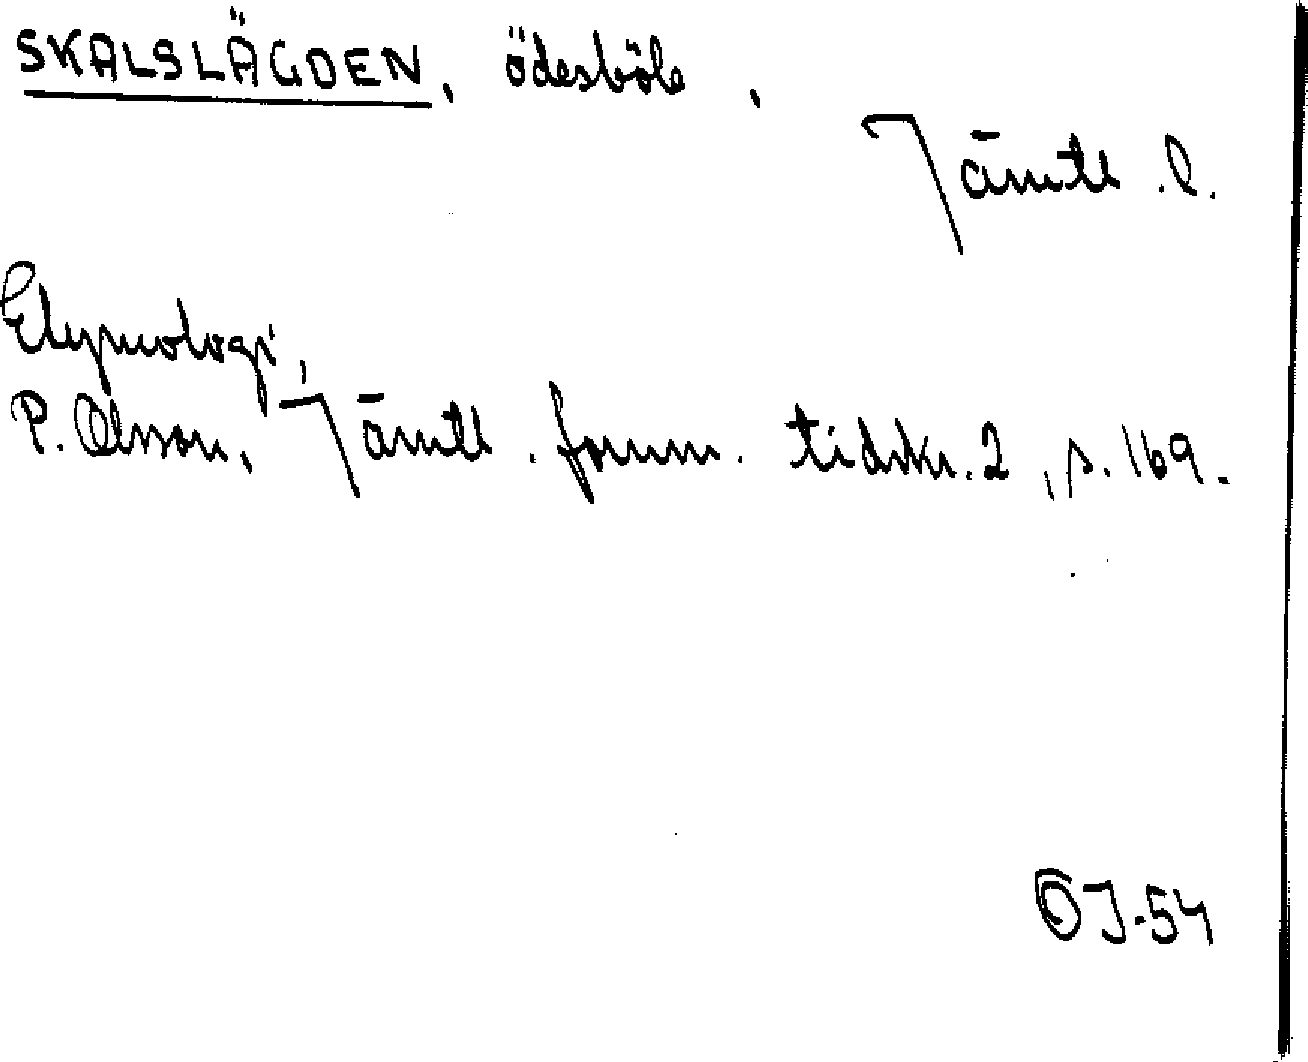 SKALSLÄGDEN, ödesböle,
Jämtl. l.
Etymologi,
P. Olsson, Jämtl. fornm. tidskr. 2, s. 169.
OJ-54